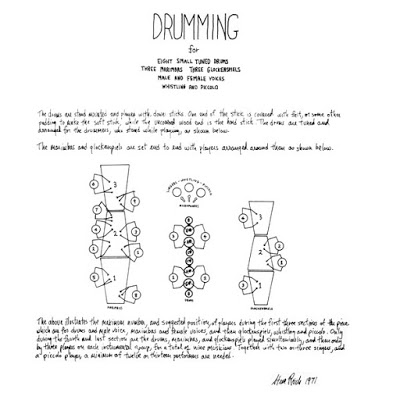 DRUMMING
for
EIGHT SMALL TUNED DRUMS
THREE MARIMBAS THREE GLOCKENSPIELS
MALE AND FEMALE VOICES
WHISTLING AND PICCOLO
The drums are stand mounted and played with sticks. One end of the stick is covered with felt, or some other
padding to make the soft stick, while the uncovered wood end is the hard stick. The drums are tuned and
arranged for the drummers, who stand while playing, as shown below.
The marimbas and glockenspiels are set end to end with players arranged around them as shown below.
VOICES - WHISTLING - PICCOLO
MICROPHONES
MARIMBAS
DRUMS
GLOCKENSPIELS
The above illustrates the maximum number, and suggested position, of players during the first three sections of the piece
which are for drums and male voice, marimbas and female voices, and then glockenspiels, whistling and piccolo. Only
during the fourth and last section are the drums, marimbas, and glockenspiels played simultaneously, and then only
by three players on each instrumental group, for a total of nine musicians. Together with two or three singers, and
a piccolo player, a minimum of twelve or thirteen performers are needed.
Steve Reich 1971